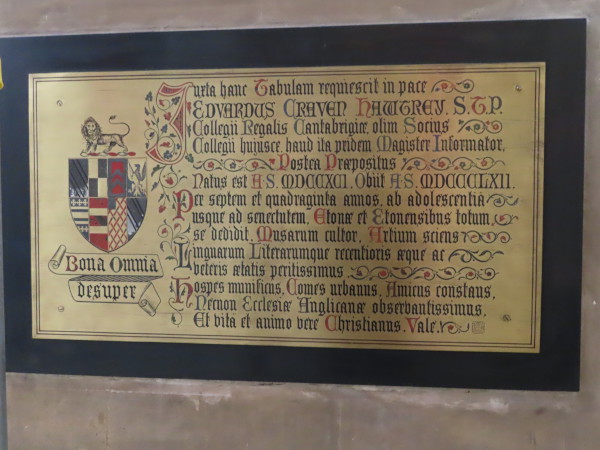 Juxta hanc Tabulam requiescit in pace
EDVARDUS CRAVEN HAWTREY. S.T.P.
Collegii Regalis Cantabrigiæ, olim Socius
Collegii hujusce, haud ita pridem Magister Informator,
Postea Præpositus
Natus est A·S· MDCCXCI. Obiit A·S· MDCCCLXII.
Per septem et quadraginta annos, ab adolescentiâ
usque ad senectutem, Etonæ et Etonensibus totum,
se dedidit, Musarum cultor, Artium sciens
Linguarum Literarumque recentioris æque ac
veteris ætatis peritissimus
Hospes munificus, Comes urbanus, Amicus constans,
Necnon Ecclesiæ Anglicanæ observantissimus,
Et vitâ et animo vere Christianus. Vale.
Bona Omnia
desuper